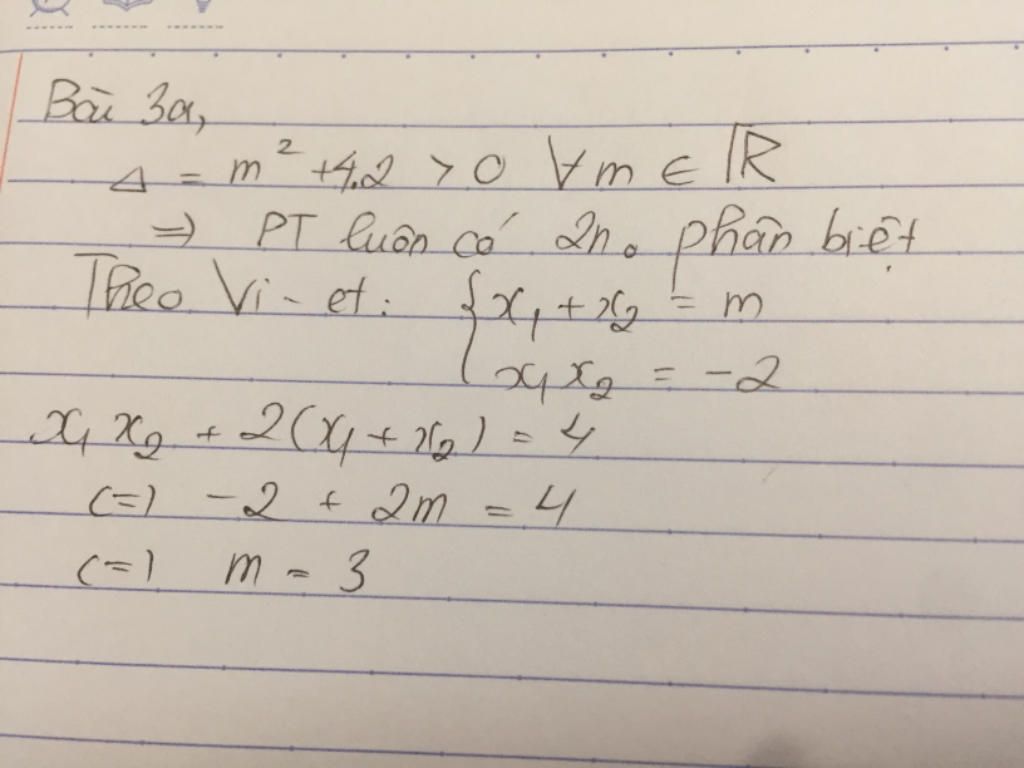 Bài 3a,
Δ = m² + 4.2 > 0 ∀m ∈ ℝ
=> PT luôn có 2n₀ phân biệt
Theo Vi - et: { x₁ + x₂ = m
x₁ x₂ = -2
x₁ x₂ + 2(x₁ + x₂) = 4
<=> -2 + 2m = 4
<=> m = 3